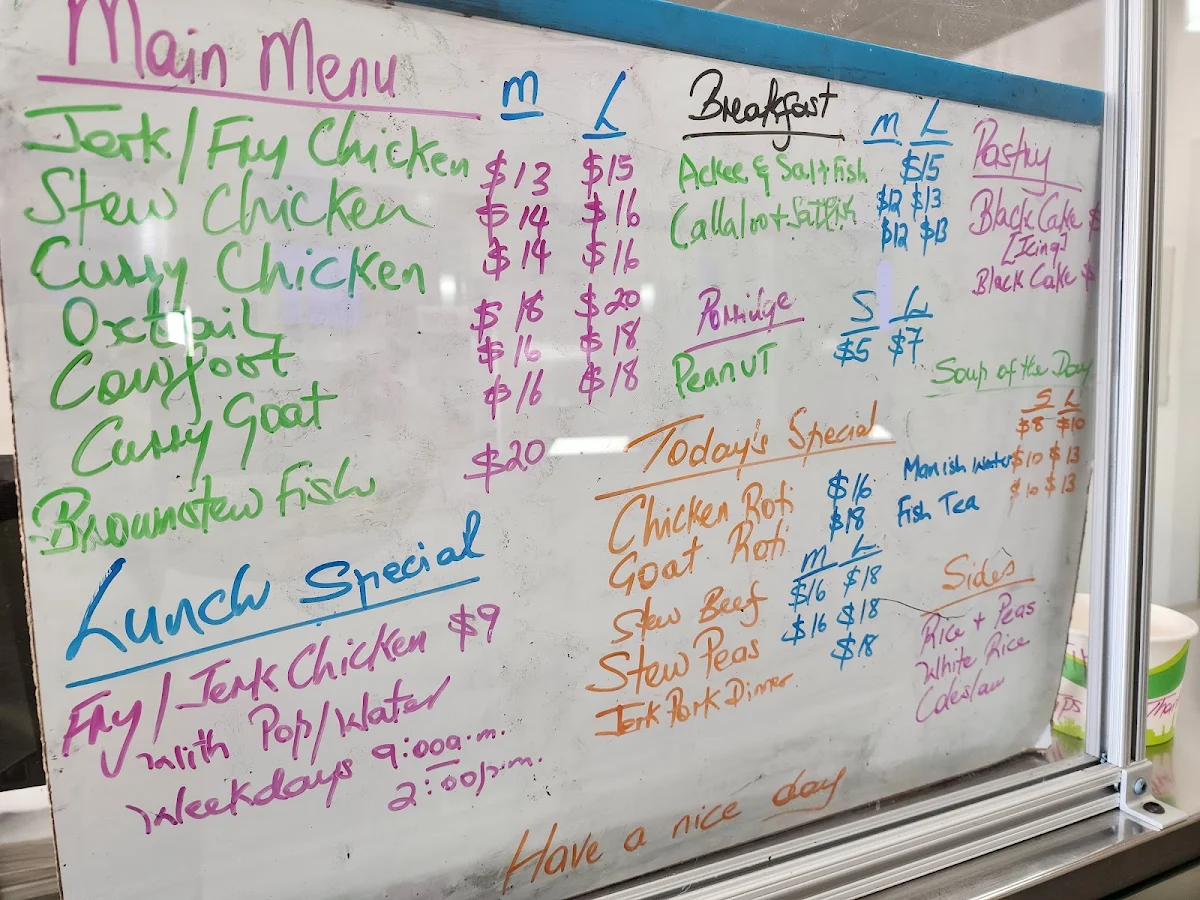 Main Menu
M L
Jerk/Fry Chicken $13 $15
Stew Chicken $14 $16
Curry Chicken $14 $16
Oxtail $18 $20
Cowfoot $16 $18
Curry Goat $16 $18
Brownstew Fish $20
Lunch Special
Fry/Jerk Chicken $9
With Pop/Water
Weekdays 9:00a.m.
2:00p.m.
Breakfast
M L
$15
Ackee & Saltfish $12 $13
Callaloo + Saltfish $12 $13
Porridge
S L
Peanut $5 $7
Today's Special
Chicken Roti $16
Goat Roti $18
M L
Stew Beef $16 $18
Stew Peas $16 $18
Jerk Pork Dinner $18
Pastry
Black Cake $
[Icing]
Black Cake $
Soup of the Day
S L
$8 $10
Manish Water $10 $13
Fish Tea $10 $13
Sides
Rice + Peas
White Rice
Coleslaw
Have a nice day